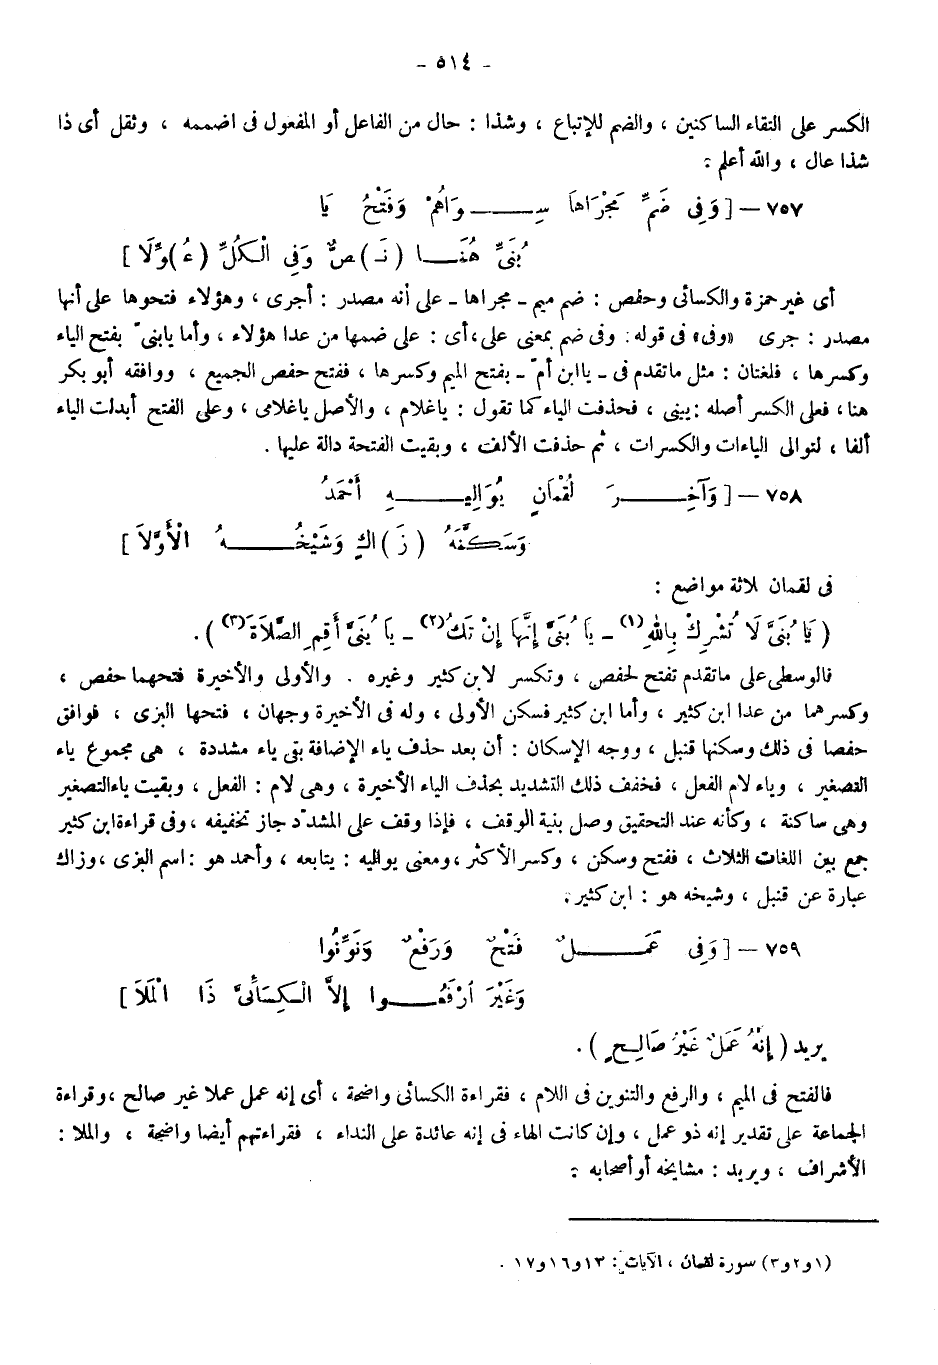 - ٥١٤ -
الكسر على التقاء الساكنين ، والضم للإتباع ، وشذا : حال من الفاعل أو المفعول فى اضممه ، وثقل أى ذا
شذا عال ، والله أعلم :
٧٥٧ – [ وَفِى ضَمِّ مَجْرَاهَا سِـــوَاهُمْ وَفَتْحُ يَا
بُنَىِّ هُنَـــا (نَـ)صٌّ وَفِى الْكُلِّ (عُ)وِّلَا ]
أى غير حمزة والكسائى وحفص : ضم ميم ـ مجراها ـ على أنه مصدر : أجرى ، وهؤلاء فتحوها على أنها
مصدر : جرى «وفى» فى قوله : وفى ضم بمعنى على، أى : على ضمها من عدا هؤلاء ، وأما يابنىّ بفتح الياء
وكسرها ، فلغتان : مثل ماتقدم فى ـ ياابن أمّ ـ بفتح الميم وكسرها ، ففتح حفص الجميع ، ووافقه أبو بكر
هنا، فعلى الكسر أصله : يبنى ، فحذفت الياء كما تقول : ياغلام ، والأصل ياغلامى ، وعلى الفتح أبدلت الياء
ألفا ، لتوالى الياءات والكسرات ، ثم حذفت الألف ، وبقيت الفتحة دالة عليها .
٧٥٨ – [ وَآخِـــرَ لُقْمَانٍ يُوَالِيـــهِ أَحْمَدُ
وَسَكَّنَهُ (زَ)اكٍ وَشَيْخُـــهُ الْأَوَّلَا ]
فى لقمان لاثة مواضع :
( يَا بُنَىَّ لَا تُشْرِكْ بِاللهِ(١) ـ يَا بُنَىَّ إِنَّهَا إِنْ تَكُ(٢) ـ يَا بُنَىَّ أَقِمِ الصَّلَاةَ(٣) ) .
فالوسطى على ماتقدم تفتح لحفص ، وتكسر لابن كثير وغيره . والأولى والأخيرة فتحهما حفص ،
وكسرهما من عدا ابن كثير ، وأما ابن كثير فسكن الأولى ، وله فى الأخيرة وجهان ، فتحها البزى ، فوافق
حفصا فى ذلك وسكنها قنبل ، ووجه الإسكان : أن بعد حذف ياء الإضافة بقى ياء مشددة ، هى مجموع ياء
التصغير ، وياء لام الفعل ، فخفف ذلك التشديد بحذف الياء الأخيرة ، وهى لام : الفعل ، وبقيت ياء التصغير
وهى ساكنة ، وكأنه عند التحقيق وصل بنية الوقف ، فإذا وقف على المشدّد جاز تخفيفه ، وفى قراءة ابن كثير
جمع بين اللغات الثلاث ، ففتح وسكن ، وكسر الأكثر ، ومعنى يواليه : يتابعه ، وأحمد هو : اسم البزى ، وزاك
عبارة عن قنبل ، وشيخه هو : ابن كثير .
٧٥٩ – [ وَفِى عَمَـــلٌ فَتْحٌ وَرَفْعٌ وَنَوِّنُوا
وَغَيْرَ ارْفَعُـــوا إِلاَّ الْكِسَائِىَّ ذَا الْمَلَا ]
يريد ( إِنَّهُ عَمَلٌ غَيْرُ صَالِحٍ ) .
فالفتح فى الميم ، والرفع والتنوين فى اللام ، فقراءة الكسائى واضحة ، أى إنه عمل عملا غير صالح ، وقراءة
الجماعة على تقدير إنه ذو عمل ، وإن كانت الهاء فى إنه عائدة على النداء ، فقراءتهم أيضا واضحة ، والملا :
الأشراف ، ويريد : مشايخه أو أصحابه :
(١و٢و٣) سورة لقمان ، الآيات : ١٣و١٦و١٧ .